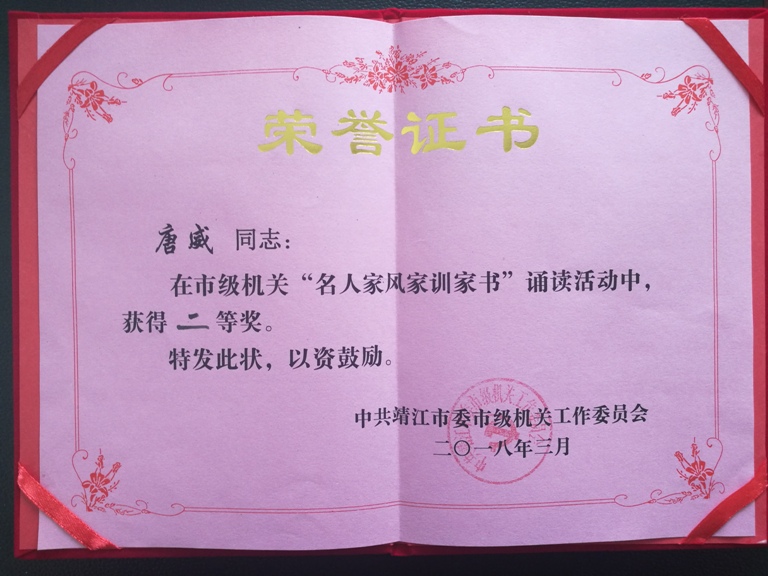 荣誉证书
唐威 同志：
在市级机关“名人家风家训家书”诵读活动中，
获得 二 等奖。
特发此状，以资鼓励。
中共靖江市委市级机关工作委员会
二〇一八年三月